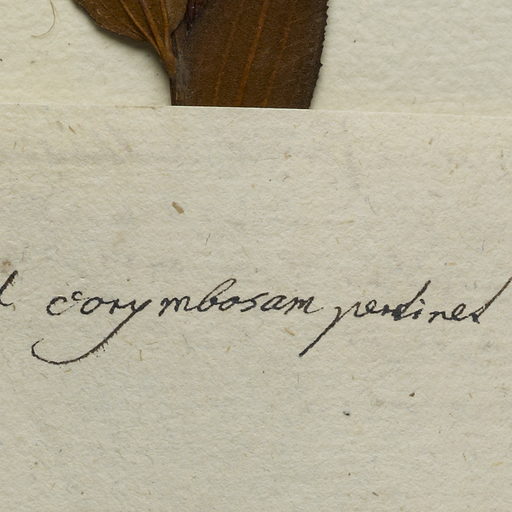 corymbosam pertinet